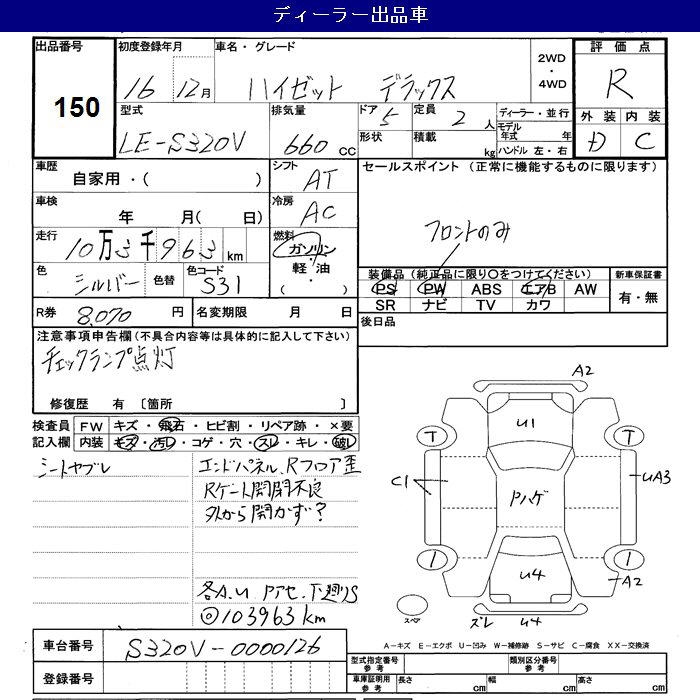 ディーラー出品車
出品番号
150
初度登録年月
16 12月
車名・グレード
ハイゼット デラックス
2WD
・
4WD
評価点
R
型式
LE-S320V
排気量
660 CC
ドア 5
形状
定員 2 人
積載 kg
ディーラー・並行
モデル年式 年
ハンドル 左・右
外装 内装
D C
車歴
自家用・( )
シフト
AT
セールスポイント (正常に機能するものに限ります)
車検
年 月( 日)
冷房
AC
フロントのみ
走行
10万3千963 km
燃料
ガソリン
・
軽油
・
色
シルバー
色替
色コード
S31
装備品 (純正品に限り○をつけてください)
新車保証書
PS PW ABS エアB AW
有・無
SR ナビ TV カワ
R券 8,070 円
名変期限 月 日
後日品
注意事項申告欄 (不具合内容等は具体的に記入して下さい)
チェックランプ点灯
修復歴 有 [箇所 ]
検査員 FW キズ・飛石・ヒビ割・リペア跡・×要
記入欄 内装 キズ・汚れ・コゲ・穴・スレ・キレ・破れ
シートヤブレ
エンドパネル、Rフロア歪
Rゲート開閉不良
外から開かず?
各A.U 下廻りS
◎103963km
A2
U1
T T
C1
Pハゲ
UA3
U4
A2
スペア
ズレ U4
車台番号
S320V-0000126
登録番号
A－キズ E－エクボ U－凹み W－補修跡 S－サビ C－腐食 XX－交換済
型式指定番号
参考
類別区分番号
参考
車庫証明用
参考
長さ cm
幅 cm
高さ cm